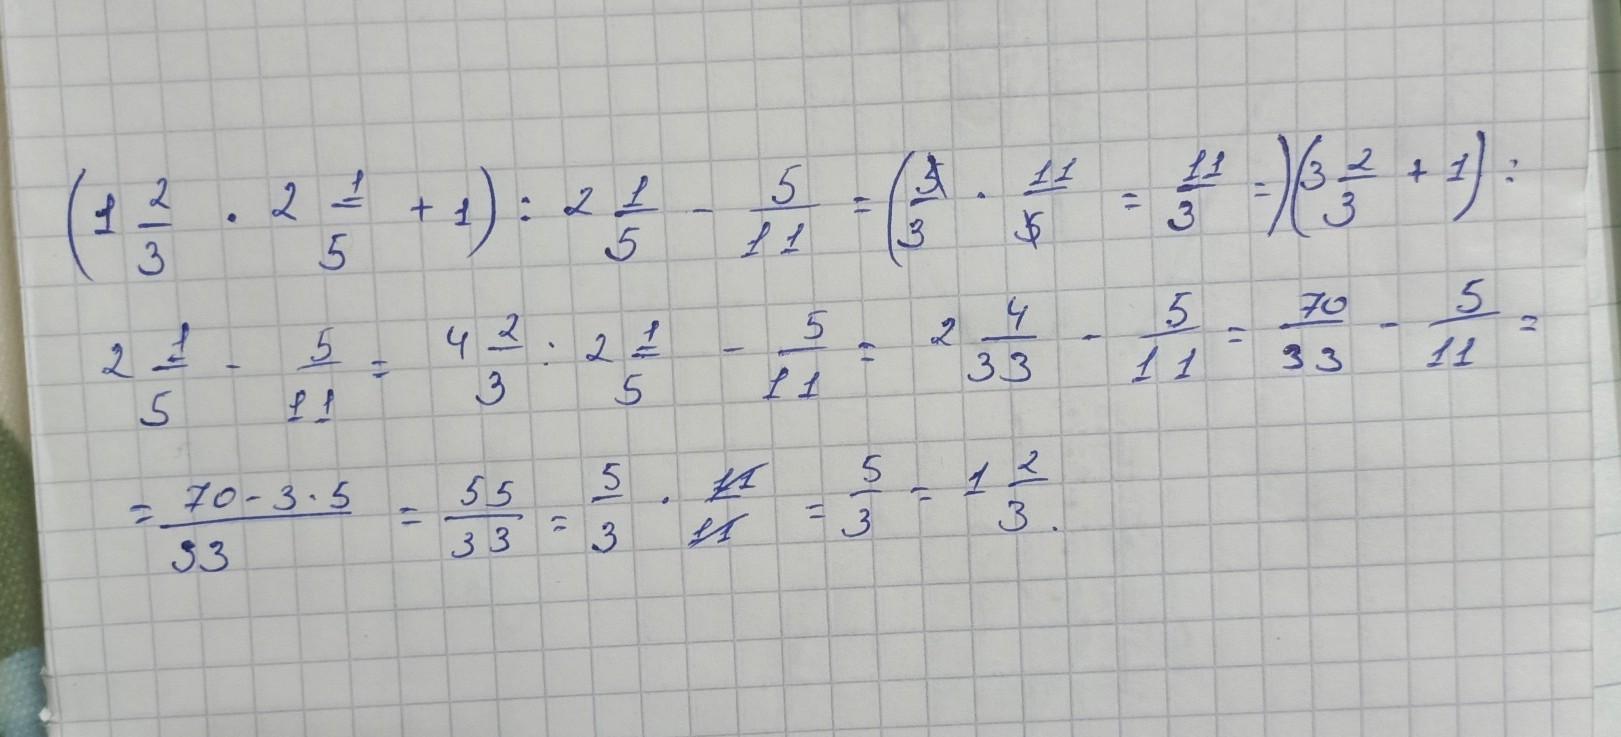 (1 2/3 · 2 1/5 + 1) : 2 1/5 - 5/11 = (5/3 · 11/5 = 11/3 =) (3 2/3 + 1) :
2 1/5 - 5/11 = 4 2/3 : 2 1/5 - 5/11 = 2 4/33 - 5/11 = 70/33 - 5/11 =
= (70 - 3 · 5)/33 = 55/33 = 5/3 · 11/11 = 5/3 = 1 2/3.